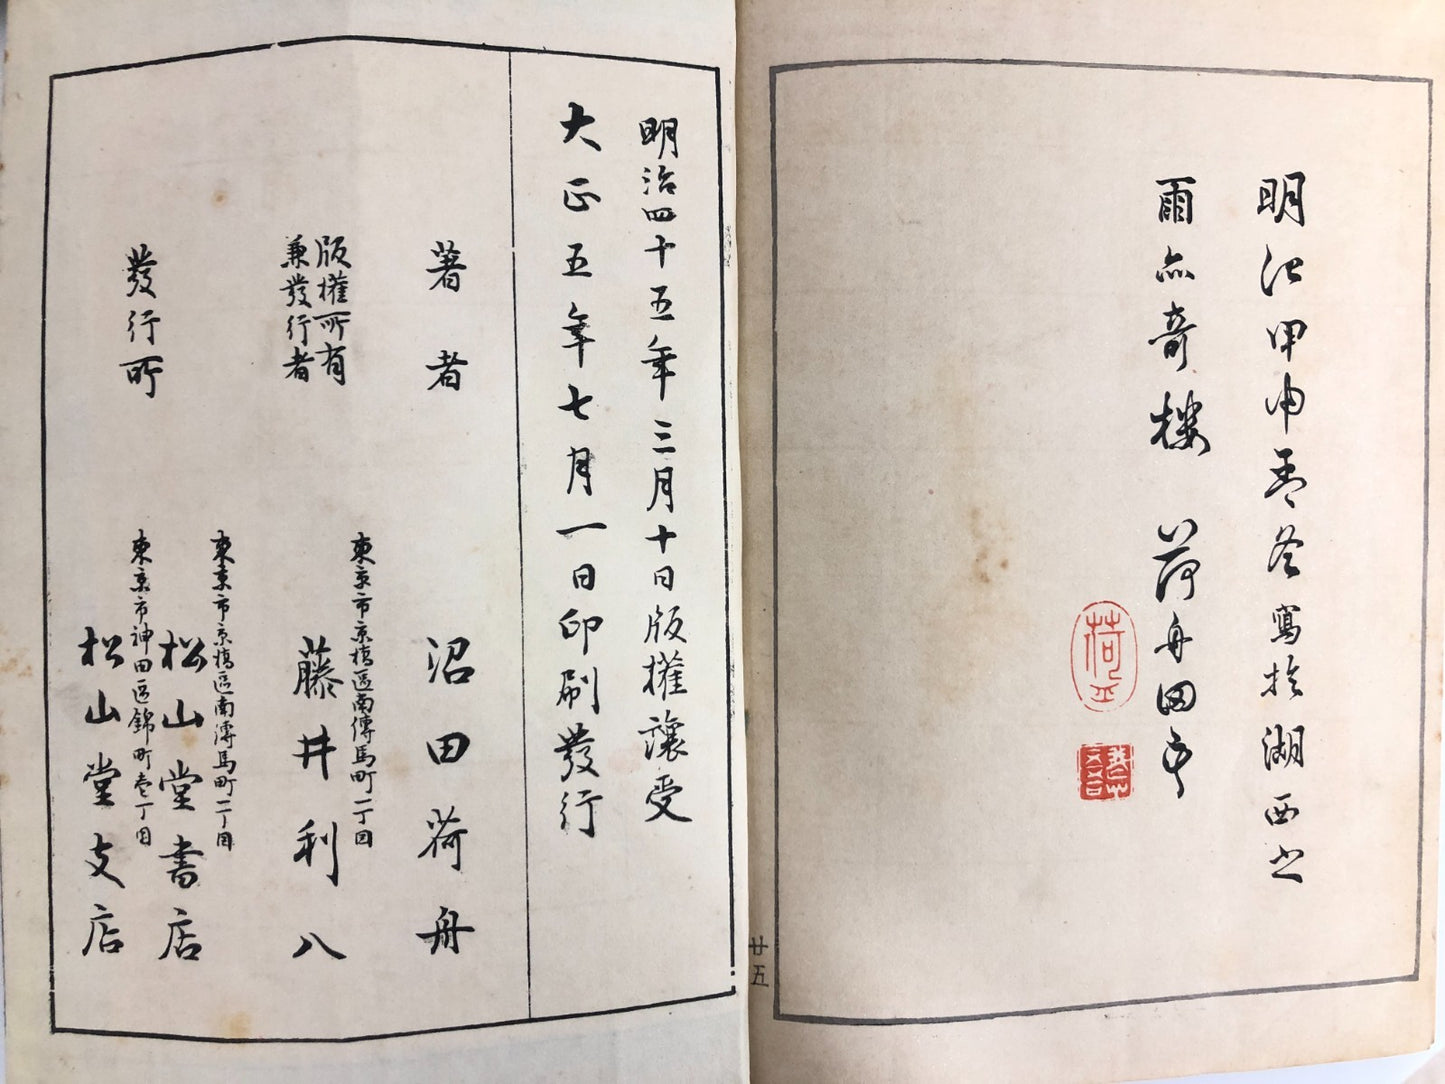 明治甲申孟冬寫於湖西之
爾亦奇樓 荷舟田
荷
廿五
明治四十五年三月十日版權讓受
大正五年七月一日印刷發行
著者
沼田荷舟
版權所有
兼發行者
東京市京橋區南傳馬町一丁目
藤井利八
發行所
東京市京橋區南傳馬町一丁目
松山堂書店
東京市神田區錦町壱丁目
松山堂支店